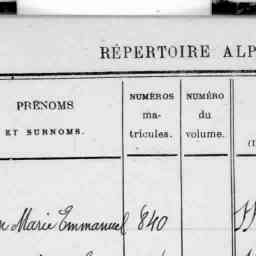 RÉPERTOIRE ALP
PRÉNOMS
ET SURNOMS.
NUMÉROS
ma-
tricules.
NUMÉRO
du
volume.
Marie Emmanuel 840